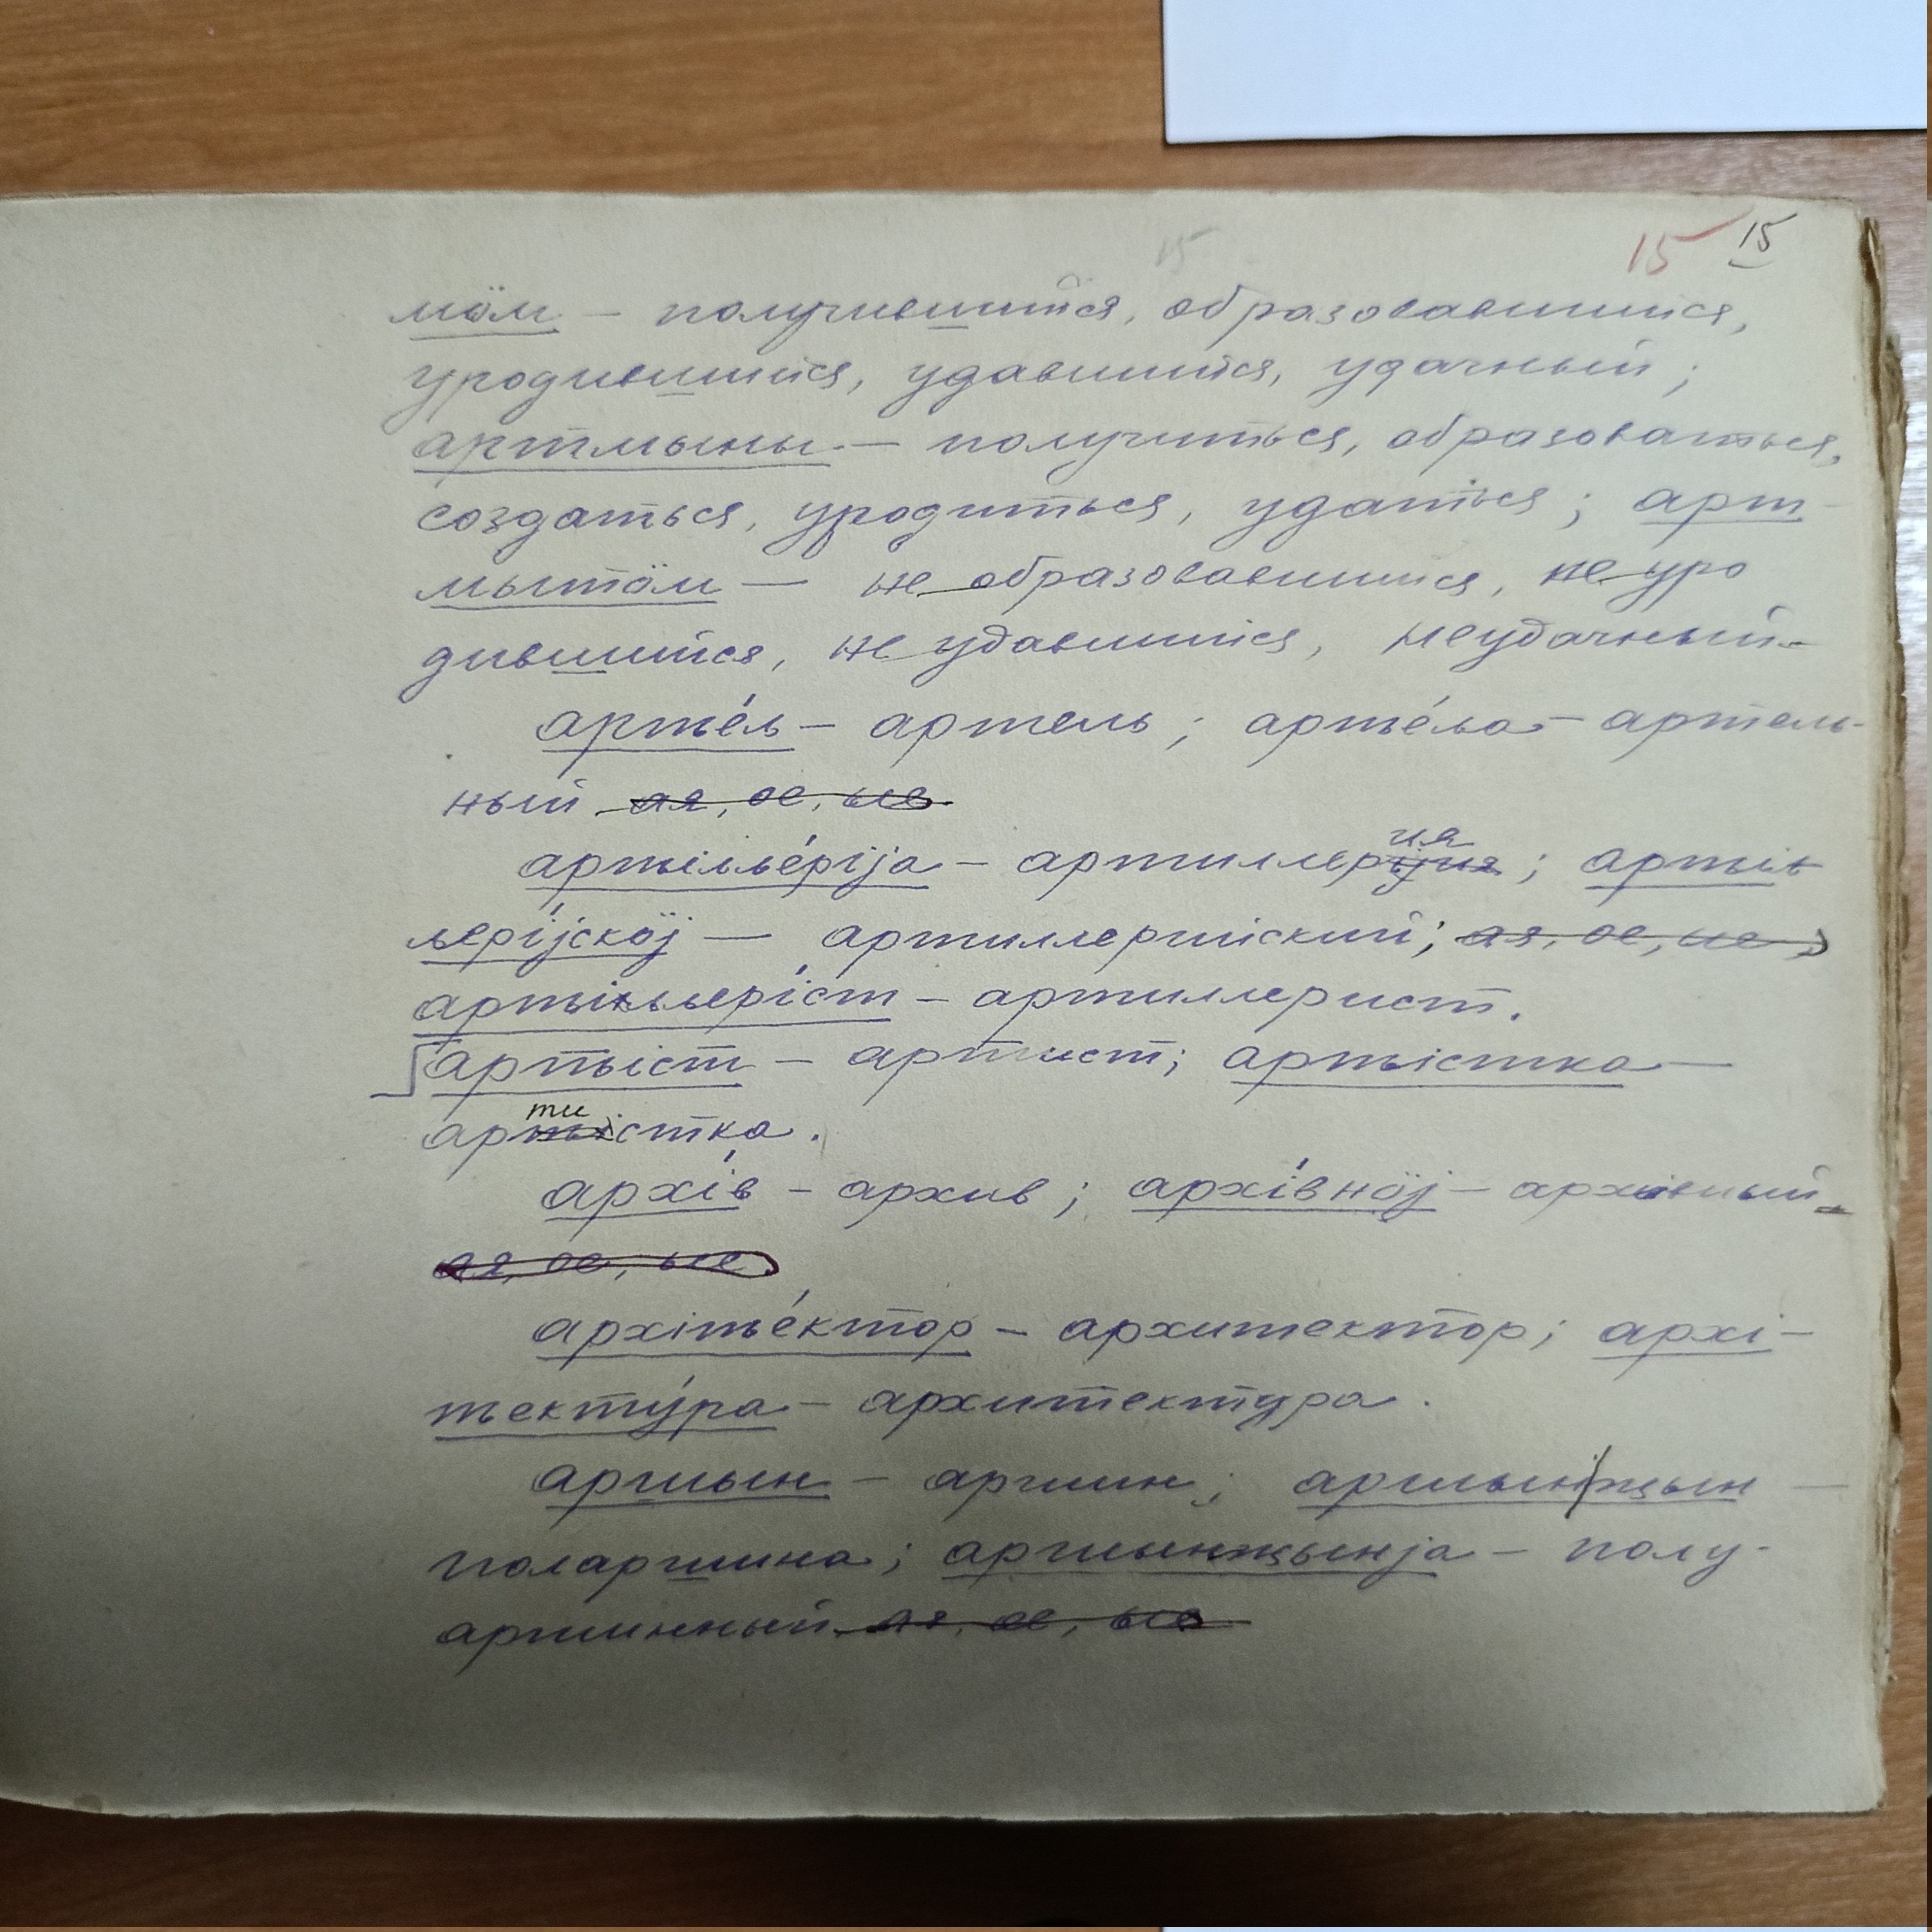 15 15 15
мӧм — получившийся, образовавшийся,
уродившийся, удавшийся, удачный;
артмыны — получиться, образоваться,
создаться, уродиться, удаться; арт-
мытӧм — не образовавшийся, не уро
дившийся, не удавшийся, неудачный
артьéль — артель; артьéльа — артель-
ный ая, ое, ые.
артьілльéріја — артиллерия; артьіль
льерíјскöј — артиллерийский; ая, ое, ые
артьілльерíст — артиллерист.
артьіст — артист; артьістка —
артистка.
архíв — архив; архíвнöј — архивный
ая, ое, ые.
архітьéктор — архитектор; архі-
тьектýра — архитектура.
аршын — аршин; аршын
поларшина; — полу-
аршинный ая, ое, ые